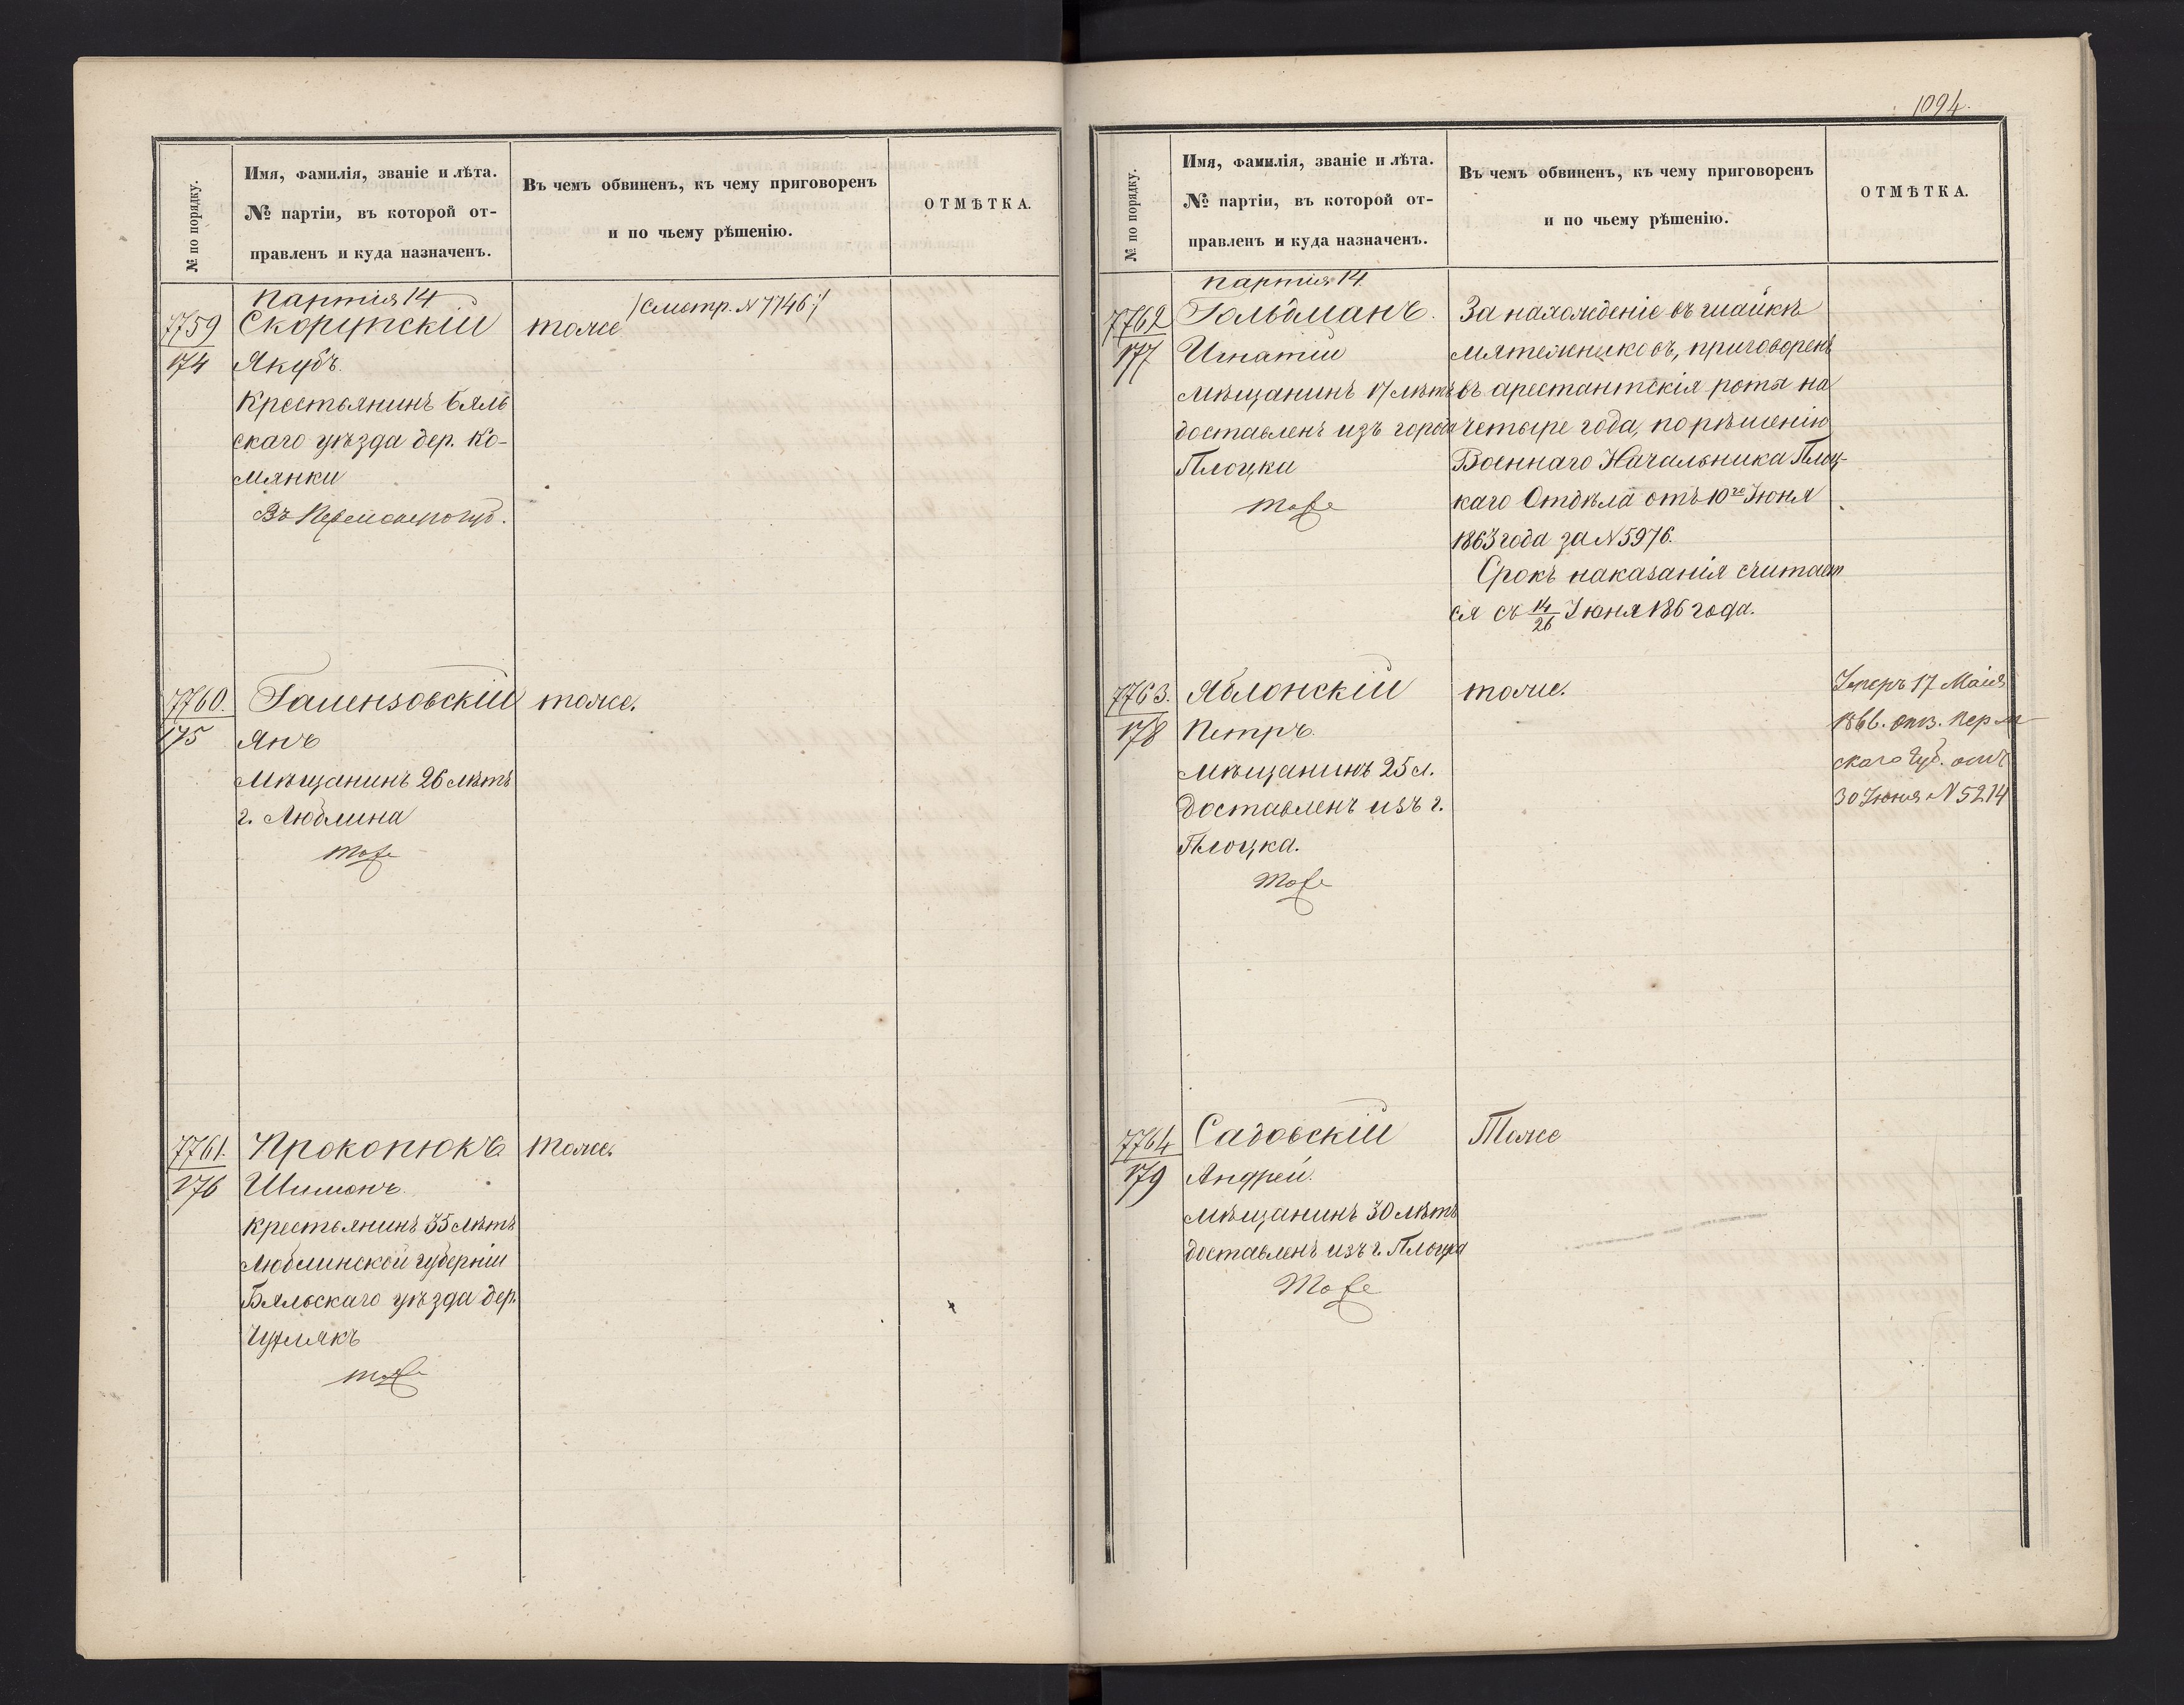 № по порядку.
Имя, фамилія, званіе и лѣта.
№ партіи, въ которой от-
правленъ и куда назначенъ.
Въ чемъ обвиненъ, къ чему приговоренъ
и по чьему рѣшенію.
ОТМѢТКА.
Партія 14
7759
174
Скорупскій
Якубъ.
Крестьянинъ Бяль
скаго уѣзда дер. Ко-
мянки
тоже
/Смотр. № 7746/
7760.
175
Янъ
Мѣщанинъ 26 лѣтъ
г. Люблина
тоже
тоже.
7761.
176
Прокопюкъ
Шимонъ.
Крестьянинъ 35 лѣтъ
Люблинской губерніи
Бяльскаго уѣзда дер.
тоже
тоже.
1094.
№ по порядку.
Имя, фамилія, званіе и лѣта.
№ партіи, въ которой от-
правленъ и куда назначенъ.
Въ чемъ обвиненъ, къ чему приговоренъ
и по чьему рѣшенію.
ОТМѢТКА.
партія 14
7762
177
Гольдманъ.
Игнатій
Мѣщанинъ 17 лѣтъ
доставленъ изъ города
Плоцка
тоже
За нахожденіе въ шайкѣ
мятежниковъ, приговоренъ
въ арестантскія роты на
четыре года, по рѣшенію
Военнаго Начальника Плоц-
каго Отдѣла отъ 10го Іюня
1863 года за №5976.
Срокъ наказанія считает
ся съ 14/26 Іюня 186 года.
7763.
178
Яблонскій
Петръ.
Мѣщанинъ 25 л.
Доставленъ изъ г.
Плоцка.
тоже
тоже.
17 Маія
1866. отз. Перм
скаго Губ. отъ
30 Іюня № 5214
7764
179
Садовскій
Андрей.
Мѣщанинъ 30 лѣтъ
доставленъ изъ г. Плоцка
тоже
Тоже